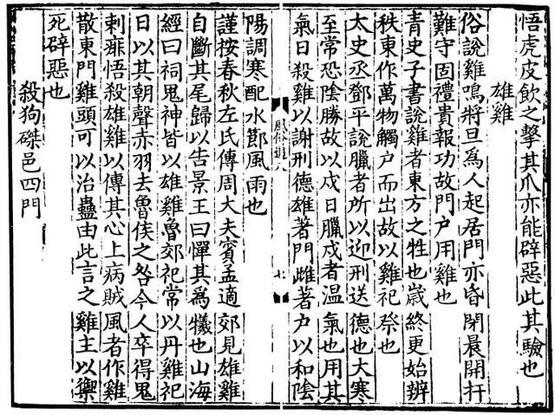 悟虎皮飲之擊其爪亦能辟惡此其驗也
雄雞
俗說雞鳴將旦為人起居門亦昏閉晨開扞
難守固禮貴報功故門戶用雞也
青史子書說雞者東方之牲也歲終更始辨
秩東作萬物觸戶而出故以雞祀祭也
太史丞鄧平說臘者所以迎刑送德也大寒
至常恐陰勝故以戌日臘戌者温氣也用其
氣日殺雞以謝刑德雄著門雌著戶以和陰
陽調寒配水節風雨也
謹按春秋左氏傳周大夫賓孟適郊見雄雞
自斷其尾歸以告景王曰憚其為犧也山海
經曰祠鬼神皆以雄雞魯郊祀常以丹雞祀
日以其朝聲赤羽去魯侯之咎今人卒得鬼
刺痱悟殺雄雞以傅其心上病賊風者作雞
散東門雞頭可以治蠱由此言之雞主以禦
死辟惡也
殺狗磔邑四門